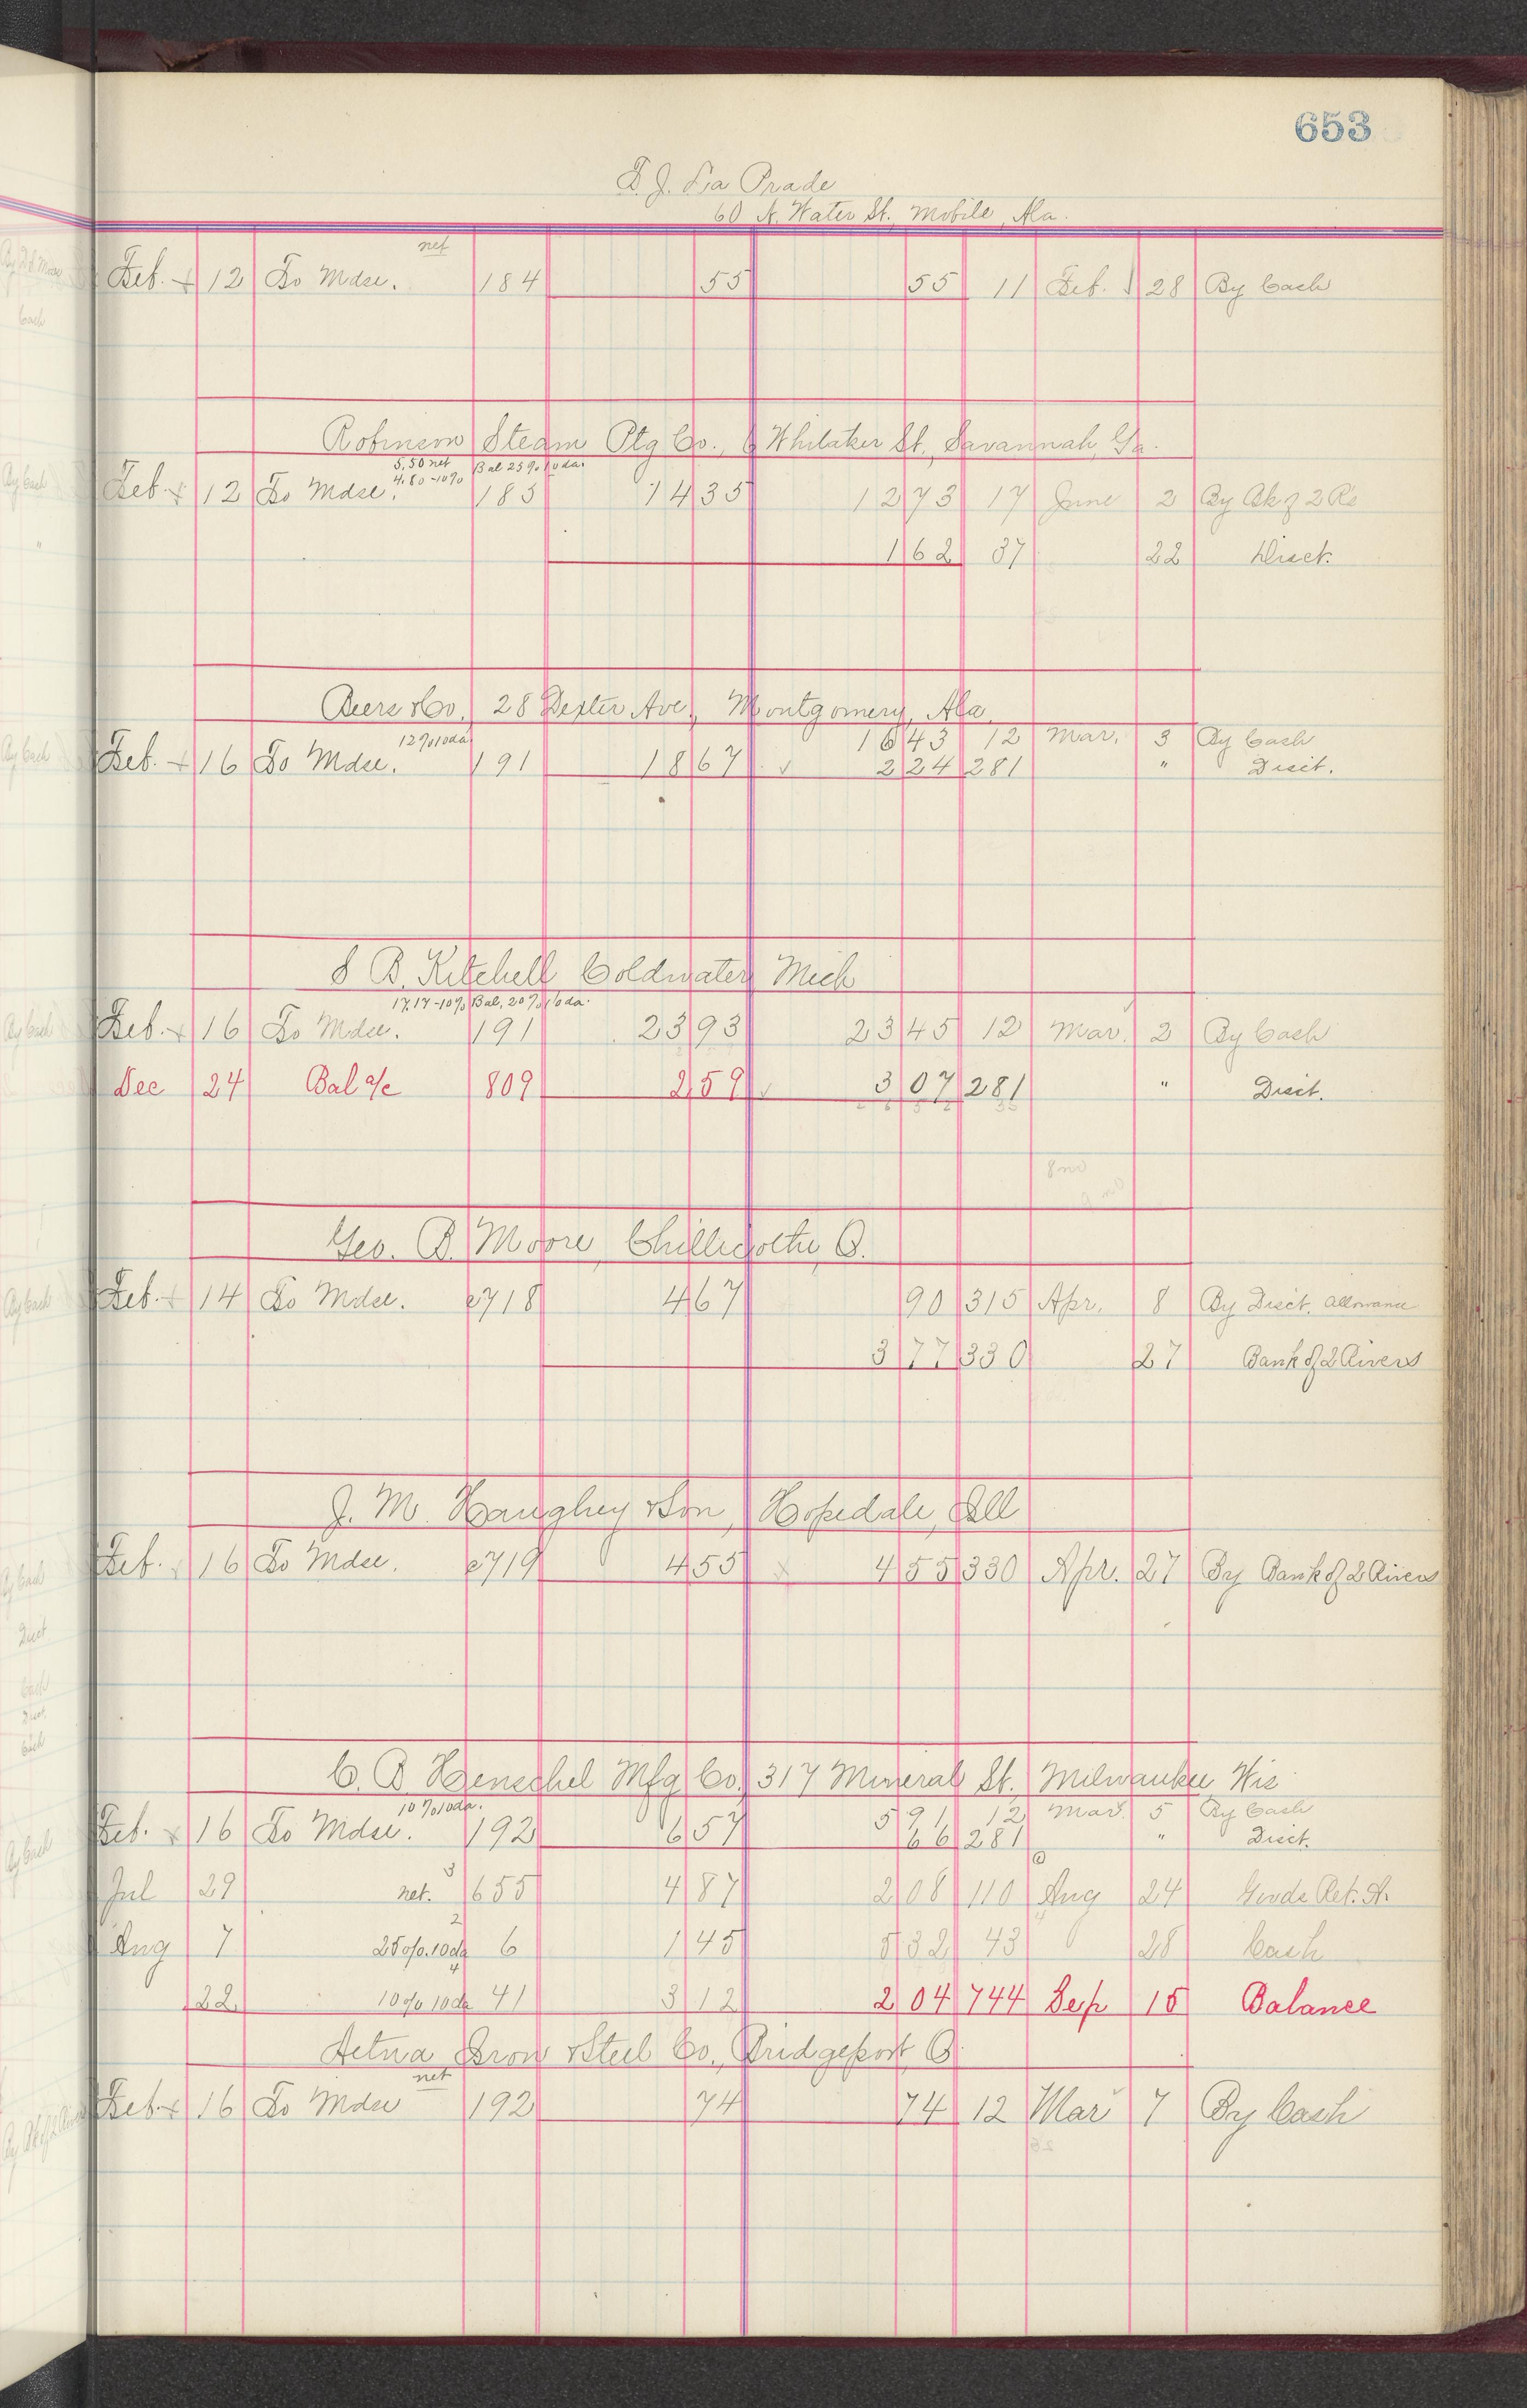 653
F. J. La Prade
60 N. Water St., Mobile, Ala.
net
Feb. 12 To Mdse. 184 55 55 11 Feb. 28 By Cash
Robinson Steam Ptg Co., 6 Whitaker St., Savannah, Ga.
5.50 net Bal 25% 10 da.
4.80 - 10%
Feb. 12 To Mdse. 185 14 35 12 73 17 June 2 By Bk of 2 R's
1 62 37 22 Disct.
Beers & Co., 28 Dexter Ave., Montgomery, Ala.
12% 10 da
16 43 12 Mar. 3 By Cash
Feb. 16 To Mdse. 191 18 67 2 24 281 " Disct.
S B. Kitchell Coldwater Mich
17.17 - 10% Bal. 20% 10 da.
Feb. 16 To Mdse. 191 23 93 23 45 12 Mar. 2 By Cash
Dec 24 Bal a/c 809 2 59 3 07 281 " Disct.
Geo. B. Moore, Chillicothe, O.
Feb. 14 To Mdse. e718 4 67 90 315 Apr. 8 By Disct. Allowance
3 77 330 27 Bank of 2 Rivers
J. M. Haughey & Son, Hopedale, Ill
Feb. 16 To Mdse. e719 4 55 4 55 330 Apr. 27 By Bank of 2 Rivers
C. B. Henschel Mfg Co., 317 Mineral St., Milwaukee Wis
10% 10 da.
5 91 12 Mar. 5 By Cash
Feb. 16 To Mdse. 192 6 57 66 281 " Disct.
Jul 29 net. 3 655 4 87 2 08 110 Aug 24 Goods Ret. A.
Aug 7 25% 10 da 2 6 1 45 5 32 43 28 Cash
22 10% 10 da 4 41 3 12 2 04 744 Sep 15 Balance
Aetna Iron & Steel Co., Bridgeport, O.
net
Feb. 16 To Mdse 192 74 74 12 Mar 7 By Cash